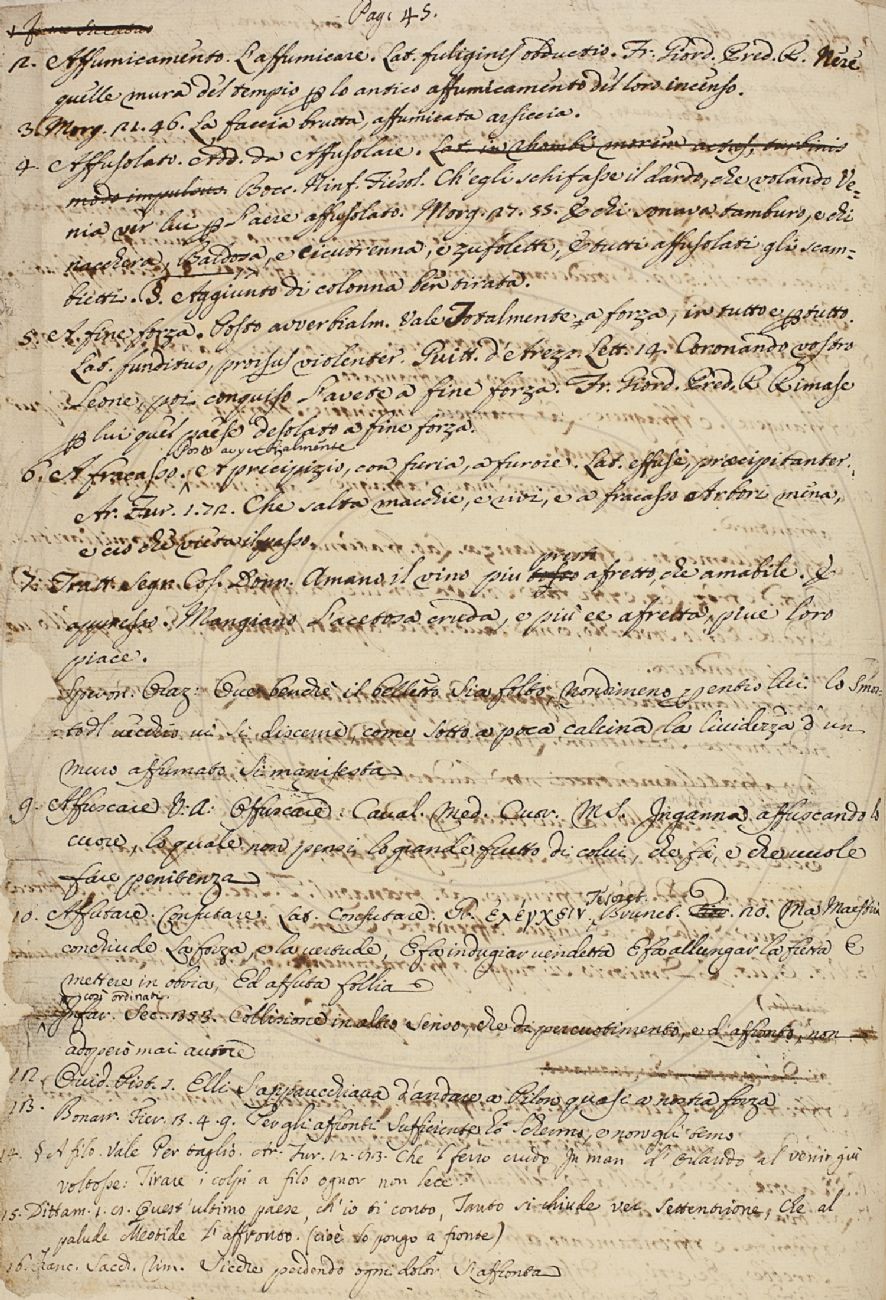 Pag: 45.
2. Affumicamento. L'affumicare. Lat. fuliginis obductio. Fr. Giord. Pred. R. Nere
quelle mura del tempio ꝑ lo antico affumicamento del loro incenso.
3. Morg. 21. 46. La faccia brutta, affumicata arsiccia.
4. Affusolato. Add. da Affusolare. Lat. in rhombi morem actus, turbinis
modo impulsus. Bocc. Ninf. Fiesol. Ch'egli schifasse il dardo, che volando Ve-
nia ver lui ꝑ l'aere affusolato. Morg. 27. 55. E chi sonava tamburo, e chi
nacchera, Baldosa, e cicutrenna, e zufoletti, E tutti affusolati gli scam-
bietti. §. Aggiunto di colonna ben tirata.
5. A fine forza. Posto avverbialm. Vale Totalmente, a forza, in tutto e ꝑ tutto.
Lat. funditus, prorsus violenter. Guitt. d'Arezz. Lett. 14. Coronando vostro
Leone, poi conquiso l'avete a fine forza. Fr. Giord. Pred. R. Rimase
ꝑ lui quel paese desolato a fine forza.
Posto avverbialmente
6. A fracasso. A precipizio, con furia, a furore. Lat. effuse, præcipitanter.
Ar. Fur. 1. 72. Che salta macchie, e rivi, e a fracasso Arbori mena,
e ciò che vieta il passo.
presto
7. Tratt. Segr. Cos. Donn. Amano il vino più tosto afretto, che amabile. E
appresso. Mangiano l'acetosa cruda, e più ce afretta, piue loro
piace.
Oraz: Ove benchè il belletto sia folto, nondimeno ꝑ entro lui lo Smor-
to vi si discerne, come sotto a poca calcina la lividezza d'un
muro affumato si manifesta
9. Affuscare V. A. Offuscare. Caval. Med. Cuor. M S. Inganna affuscando lo
cuore, lo quale non pensi lo grande frutto di colui, che fà, e che vuole
fare penitenza
Tesoret.
10. Affutare. Confutare. Lat. Confutare. Gr. ἐλέγχειν. Brunet. 20. Ma Maestria
conchiude La forza, e la vertude, E fa indugiar vendetta E fa allungar la fretta E
mettere in obria, Ed affuta follia
così ordinati
Infar. Sec. 353. Collisione in altro senso, che di percuotimento, e d'affronto, non
adoperò mai autore
12. Ovid. Pist. 2. Elli s'apparecchiava d'andare a Pilon quasi a nostra forza
13. Bonarr. Fier. 3. 4. 9. Per gli affronti sufficiente hò schermo, e non gli temo
14. § A filo. Vale Per taglio. Ar. Fur. 12. Che 'l ferro crudo In man d'Orlando al venir giù
voltosse: Tirare i colpi a filo ognor non lece
15. Dittam. Quest'ultimo paese, ch'io ti conto, Tanto si chiude ver Settentrione, Che al
palude Meotide L'affronto. (cioè lo pongo a fronte)
16. Franc. Sacch. Rim. Siedre perdendo ogni dolor s'affronta